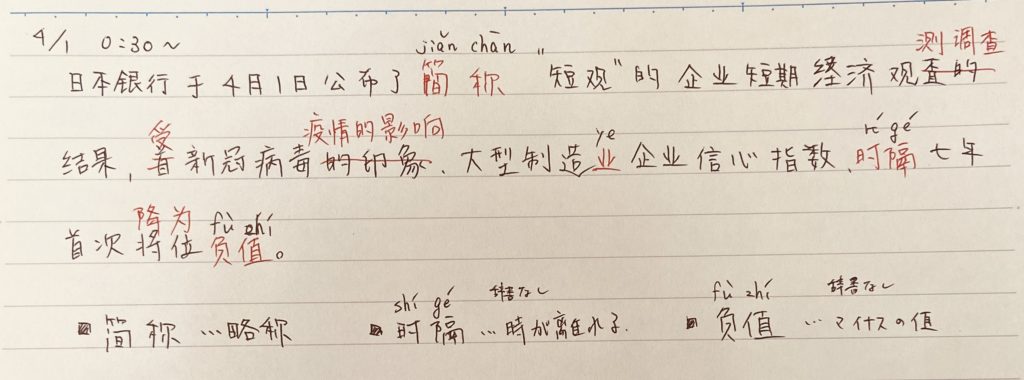 4/1 0:30~
jiǎn chān 测调查
日本银行于4月1日公布了简称"短观"的企业短期经济观查的
受 疫情的影响 ye gé
结果,着新冠病毒的印象、大型制造业企业信心指数、时隔七年
降为 fù zhí
首次将位负值。
shí gé 辞書なし fù zhí 辞書なし
简称…略称 时隔…時が離れる. 负值…マイナスの値